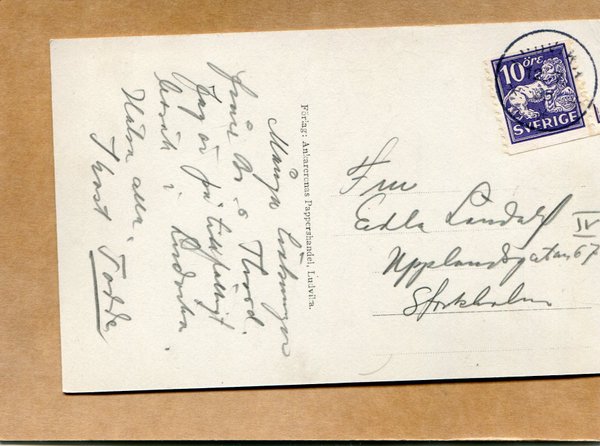 Många hälsningar
från Br o Thord.
Jag är på tillfälligt
besök i
Hälsa alla.
Thord
Förlag: Ankarcronas Pappershandel, Ludvika.
10 öre
SVERIGE
Fru
Edla Lindalf
IV
Upplandsgatan 67
Stockholm